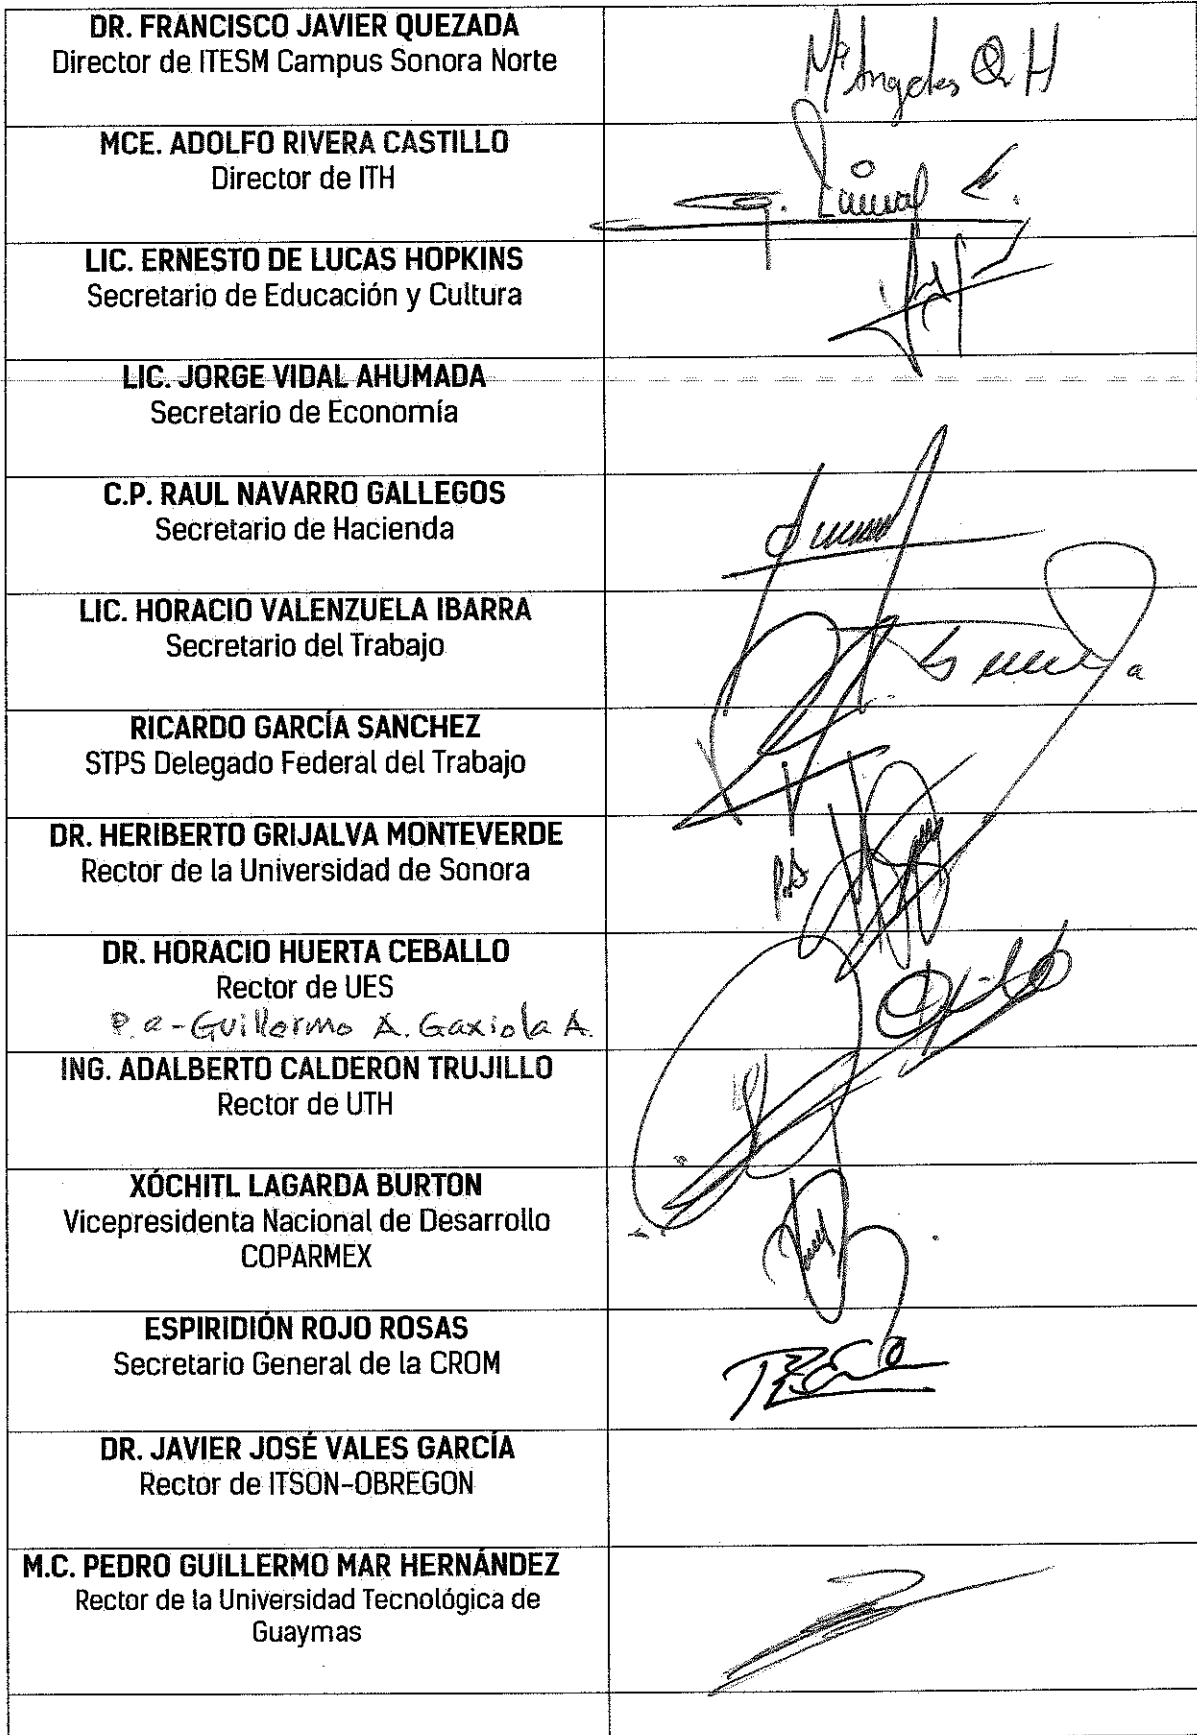 DR. FRANCISCO JAVIER QUEZADA
Director de ITESM Campus Sonora Norte
Mª Angeles Q H
MCE. ADOLFO RIVERA CASTILLO
Director de ITH
LIC. ERNESTO DE LUCAS HOPKINS
Secretario de Educación y Cultura
LIC. JORGE VIDAL AHUMADA
Secretario de Economía
C.P. RAUL NAVARRO GALLEGOS
Secretario de Hacienda
LIC. HORACIO VALENZUELA IBARRA
Secretario del Trabajo
RICARDO GARCÍA SANCHEZ
STPS Delegado Federal del Trabajo
DR. HERIBERTO GRIJALVA MONTEVERDE
Rector de la Universidad de Sonora
DR. HORACIO HUERTA CEBALLO
Rector de UES
P.a-Guillermo A. Gaxiola A.
ING. ADALBERTO CALDERON TRUJILLO
Rector de UTH
XÓCHITL LAGARDA BURTON
Vicepresidenta Nacional de Desarrollo
COPARMEX
ESPIRIDIÓN ROJO ROSAS
Secretario General de la CROM
DR. JAVIER JOSÉ VALES GARCÍA
Rector de ITSON-OBREGON
M.C. PEDRO GUILLERMO MAR HERNÁNDEZ
Rector de la Universidad Tecnológica de
Guaymas